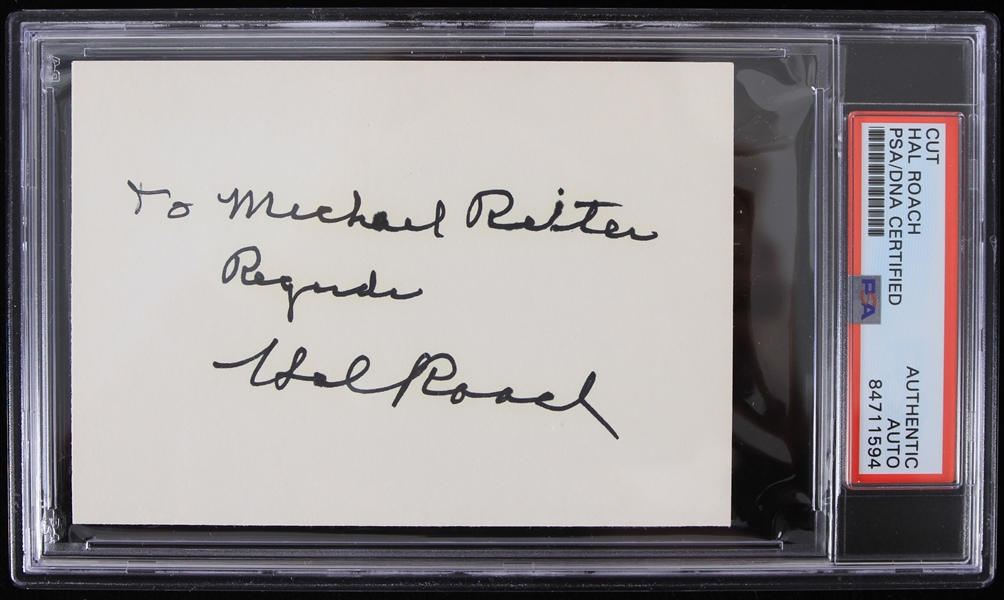 To Michael Reiter
Regards
Hal Roach
CUT
HAL ROACH
PSA/DNA CERTIFIED
PSA
AUTHENTIC
AUTO
84711594